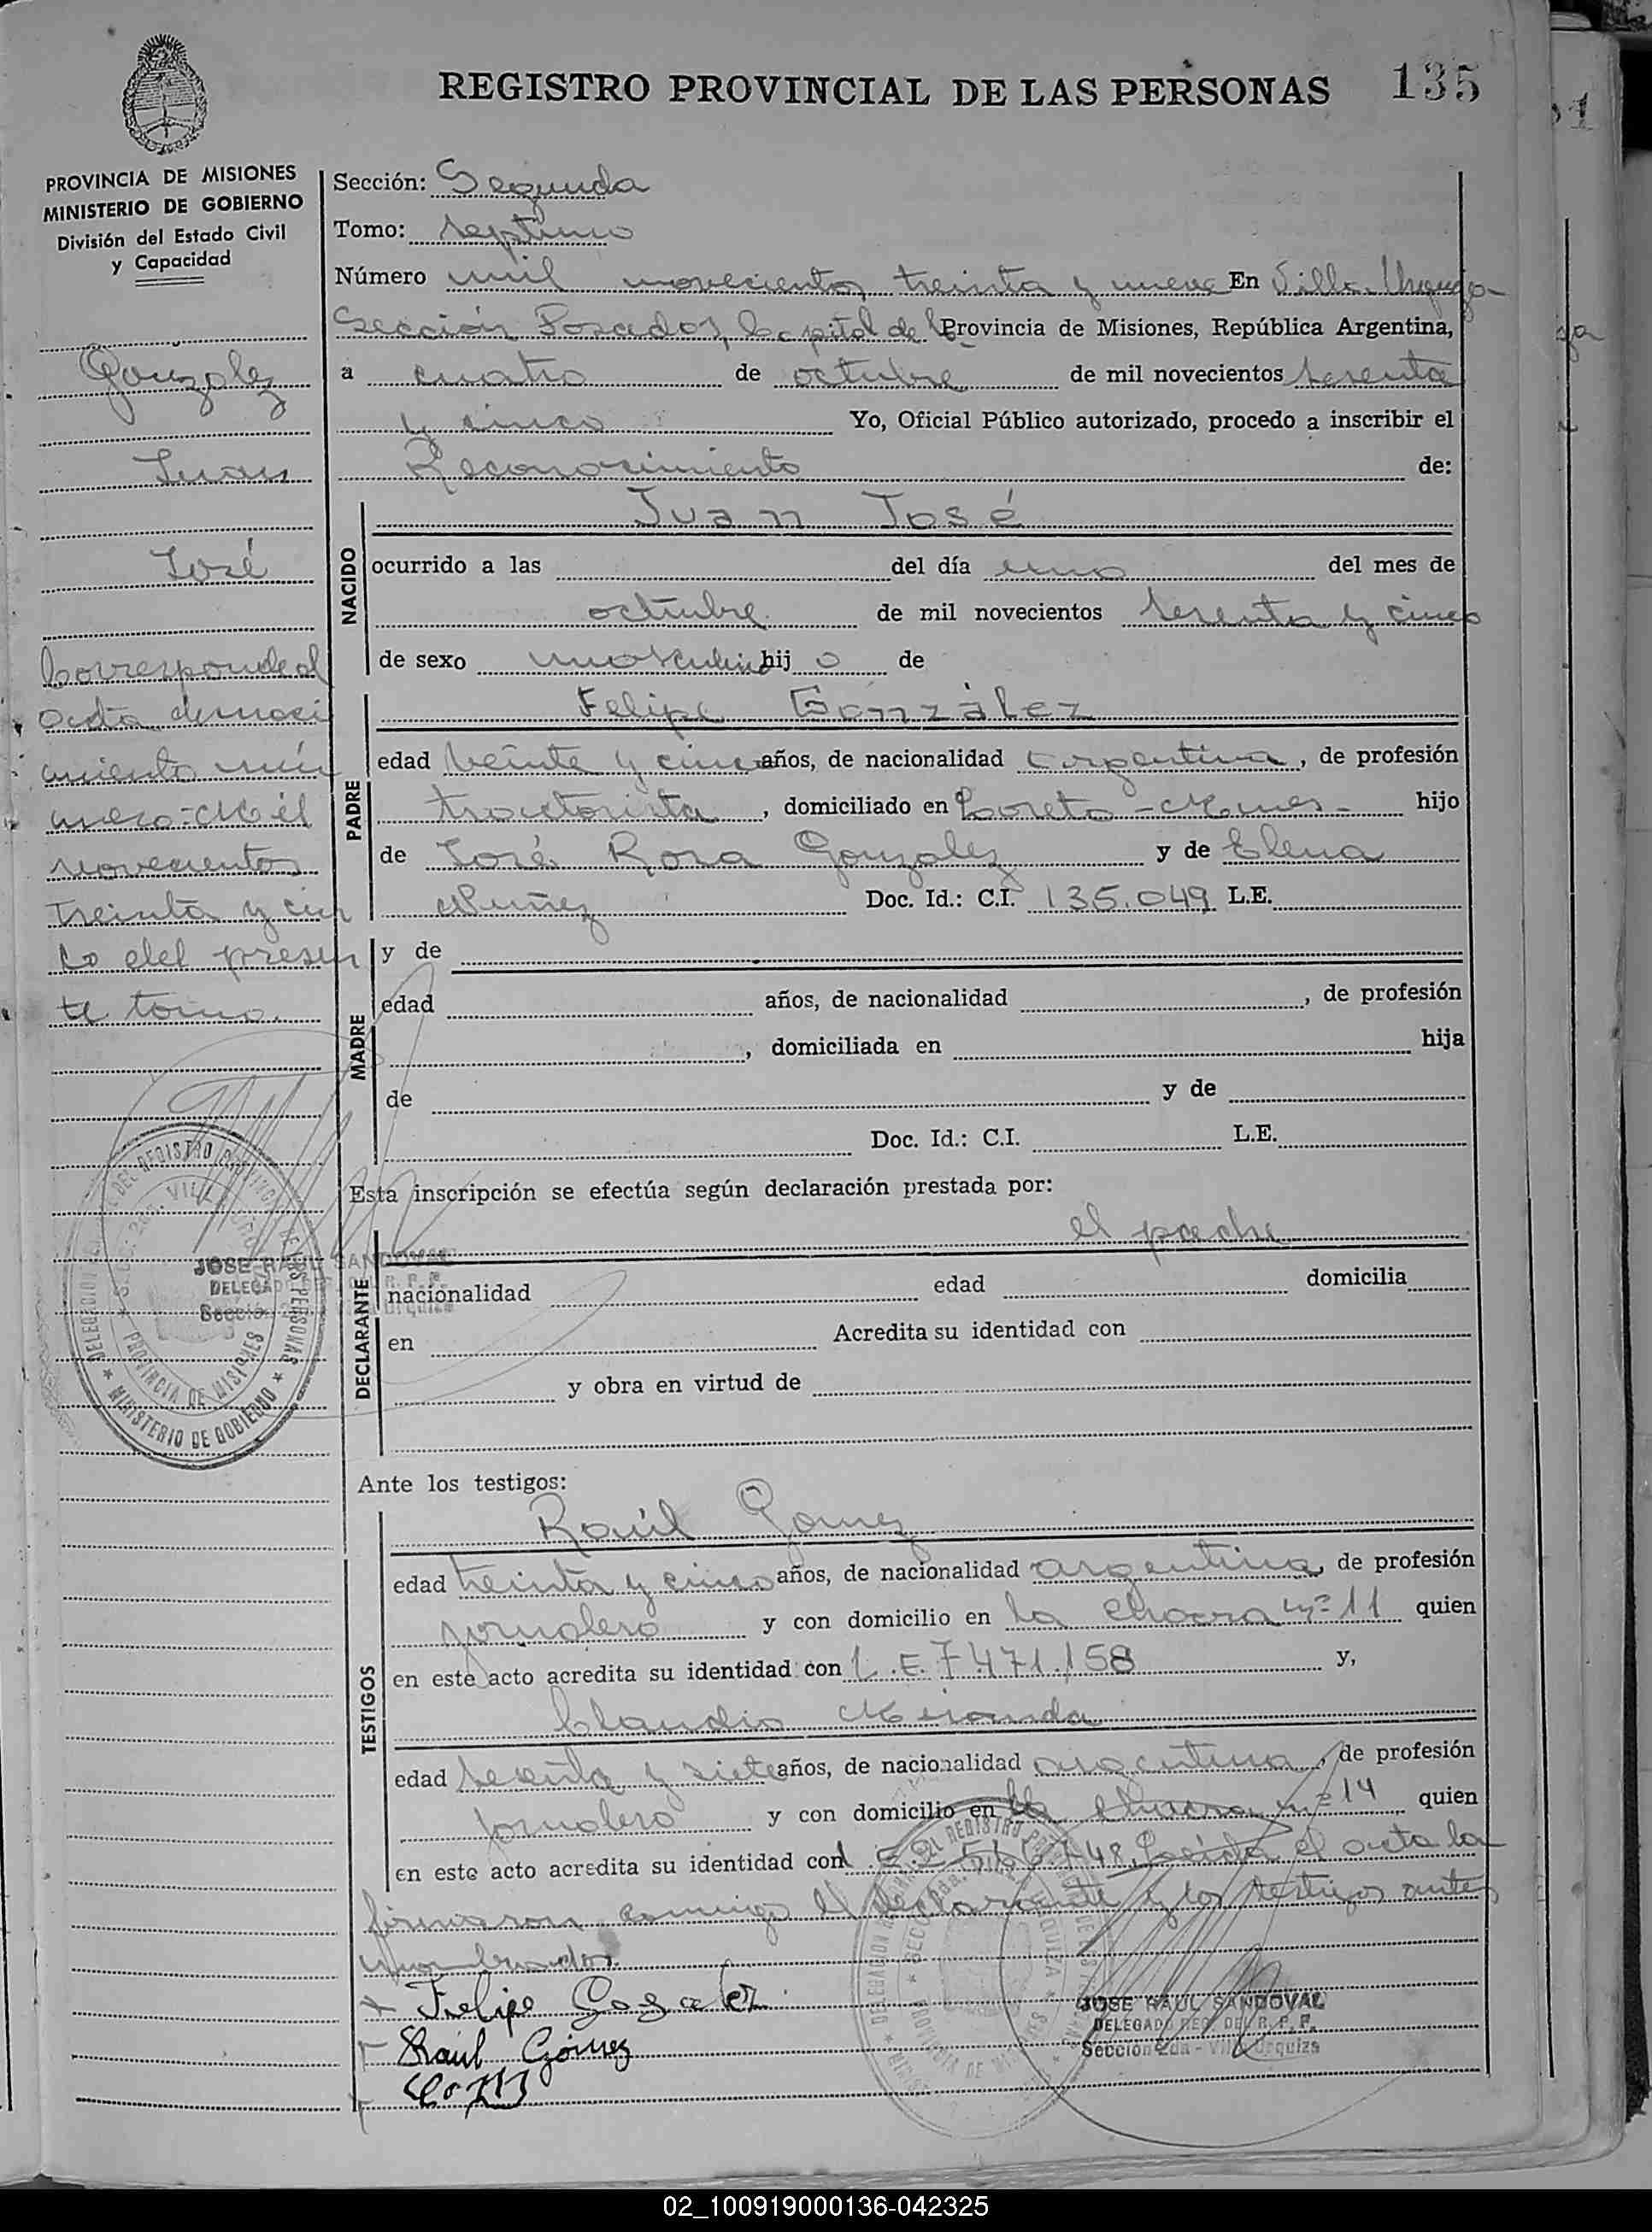 REGISTRO PROVINCIAL DE LAS PERSONAS 135
PROVINCIA DE MISIONES
MINISTERIO DE GOBIERNO
División del Estado Civil
y Capacidad
Gonzalez
Juan
José
Corresponde al
acta de naci
miento nú
mero - Mil
novecientos
treinta y cin
co del presen
te tomo.
Sección: Segunda
Tomo: septimo
Número mil novecientos treinta y nueve En Villa Urquiza
Sección Posadas, Capital de la Provincia de Misiones, República Argentina,
a cuatro de octubre de mil novecientos sesenta
y cinco Yo, Oficial Público autorizado, procedo a inscribir el
Reconocimiento de:
NACIDO
Juan José
ocurrido a las del día uno del mes de
octubre de mil novecientos sesenta y cinco
de sexo masculino hij o de
PADRE
Felipe González
edad veinte y cinco años, de nacionalidad argentina, de profesión
tractorista, domiciliado en Loreto - Mnes - hijo
de José Rosa Gonzalez y de Elena
Nuñez Doc. Id.: C.I. 135.049 L.E.
MADRE
y de
edad años, de nacionalidad , de profesión
, domiciliada en hija
de y de
Doc. Id.: C.I. L.E.
Esta inscripción se efectúa según declaración prestada por:
DECLARANTE
el padre
nacionalidad edad domicilia
en Acredita su identidad con
y obra en virtud de
Ante los testigos:
TESTIGOS
Raúl Gomez
edad treinta y cinco años, de nacionalidad argentina, de profesión
jornalero y con domicilio en la chacra nº 11 quien
en este acto acredita su identidad con L.E. 7.471.158 y,
Claudio Miranda
edad años, de nacionalidad argentina, de profesión
jornalero y con domicilio en la chacra nº 14 quien
en este acto acredita su identidad con Leída el acta la
firmaron conmigo el declarante y los testigos antes
nombrados.
Felipe Gosalez
Raúl Gómez
JOSE RAUL SANDOVAL
DELEGADO REG. DEL R. P. P.
Sección 2da - Villa Urquiza
JOSE RAUL SANDOVAL
DELEGADO R. P. P.
Sección Urquiza
DELEGACION DEL REGISTRO PROVINCIAL DE LAS PERSONAS
MINISTERIO DE GOBIERNO
PROVINCIA DE MISIONES
02_100919000136-042325